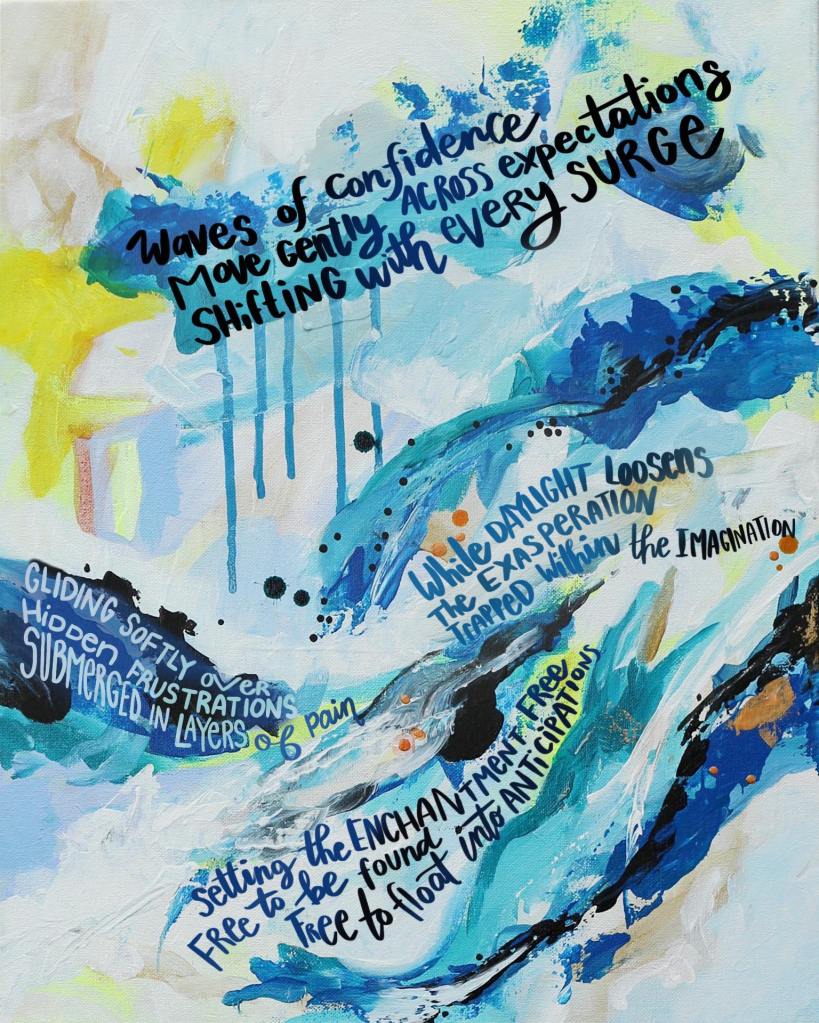 waves of confidence
Move GENtly ACROSS expectations
SHiftiNG with EVERY SURGE
While DAYLIGHT LOOSENS
the EXASPERATION
TRAPPED Within the IMAGINATION
GLIDING SOFTLY OVER
HIDDEN FRUSTRATIONS
SUBMERGED IN LAYERS of pain
setting the ENCHANTMENT FREE
FREE to be found
FREE to float into ANTICIPATIONS